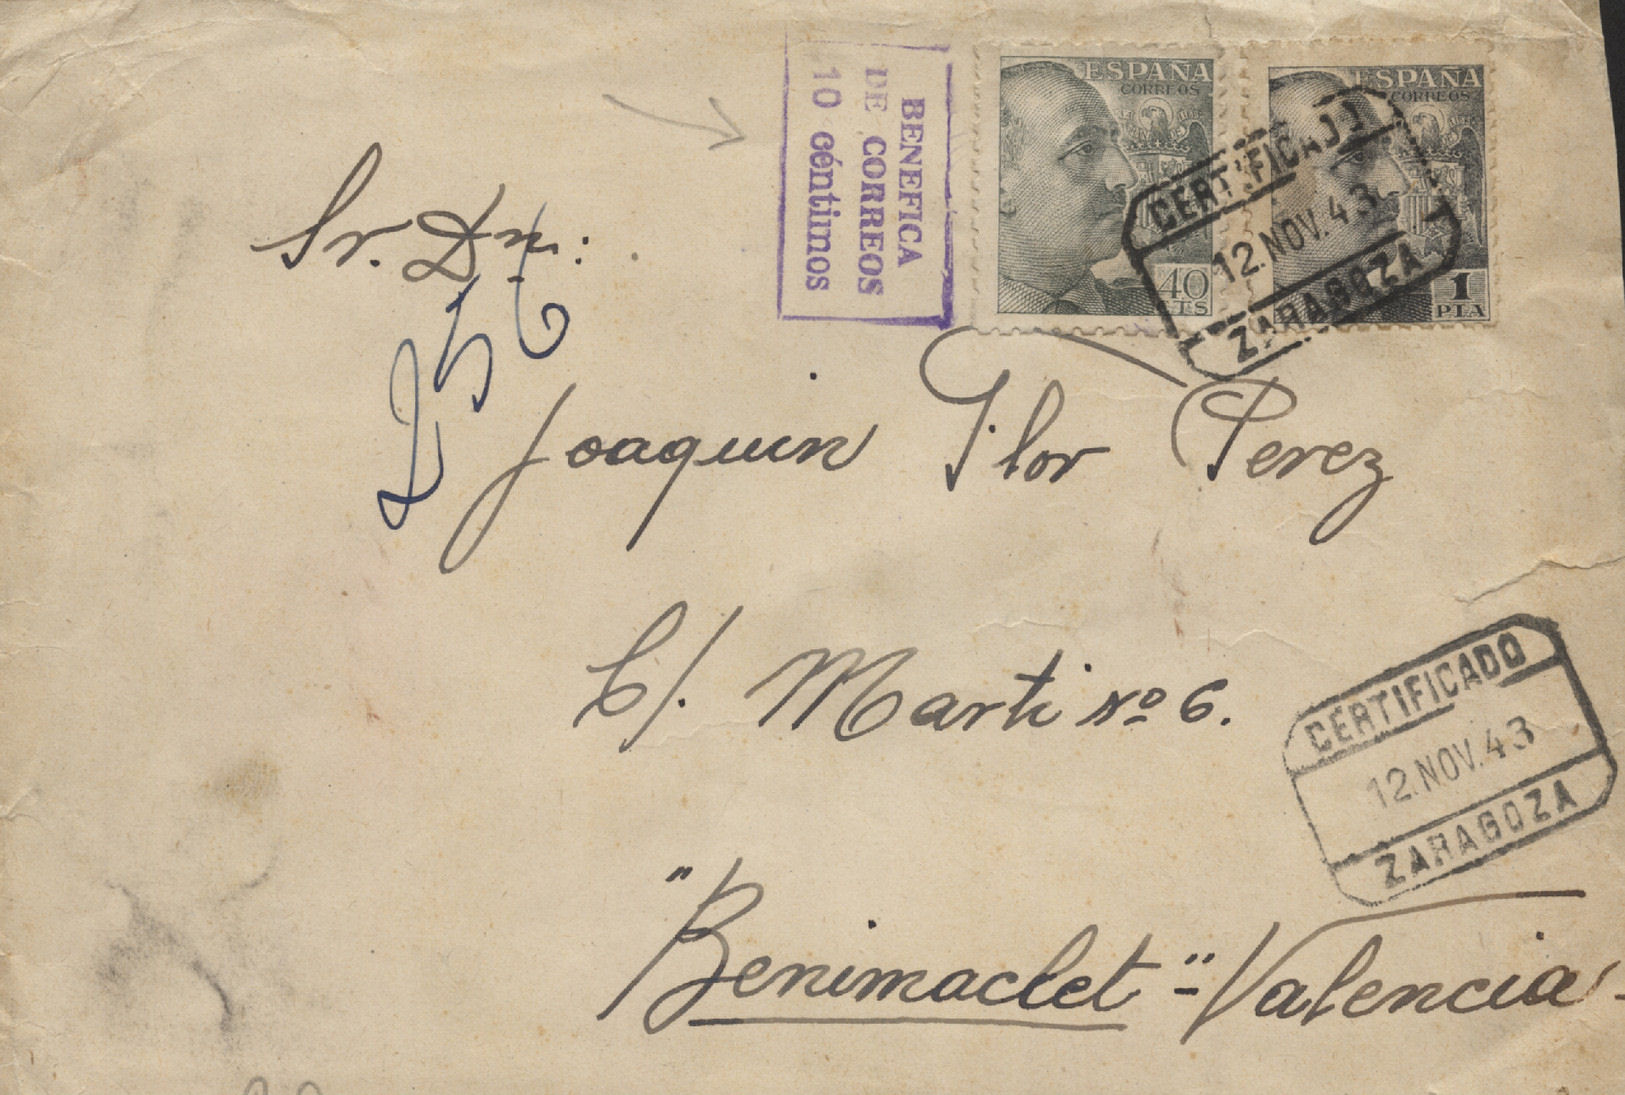 BENEFICA
DE CORREOS
10 céntimos
ESPAÑA
CORREOS
40
CTS
ESPAÑA
CORREOS
1
PTA
CERTIFICADO
12.NOV.43
ZARAGOZA
Sr. Dn:
256
Joaquin Flor Perez
C/. Marti nº 6.
CERTIFICADO
12.NOV.43
ZARAGOZA
"Benimaclet"-Valencia-